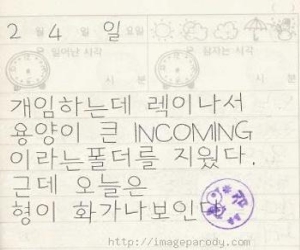 2월 4일 일요일
일어난 시각 잠자는 시각
시 분 시 분
개임하는데 렉이나서
용양이 큰 INCOMING
이라는폴더를 지웠다.
근데 오늘은
형이 화가나보인다
http://imageparody.com/